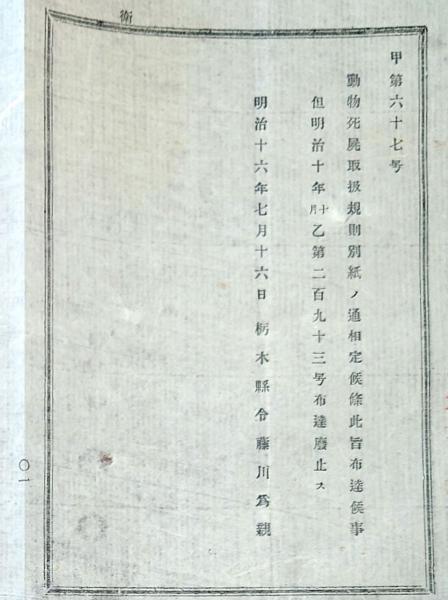 衛
甲第六十七号
動物死屍取扱規則別紙ノ通相定候條此旨布達候事
但明治十年十月乙第二百九十三号布達廢止ス
明治十六年七月十六日 栃木縣令藤川為親
〇一